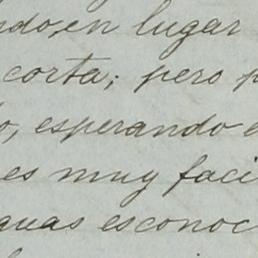 ndo, en lugar
corta; pero p
o, esperando e
es muy faci
guas esconoc